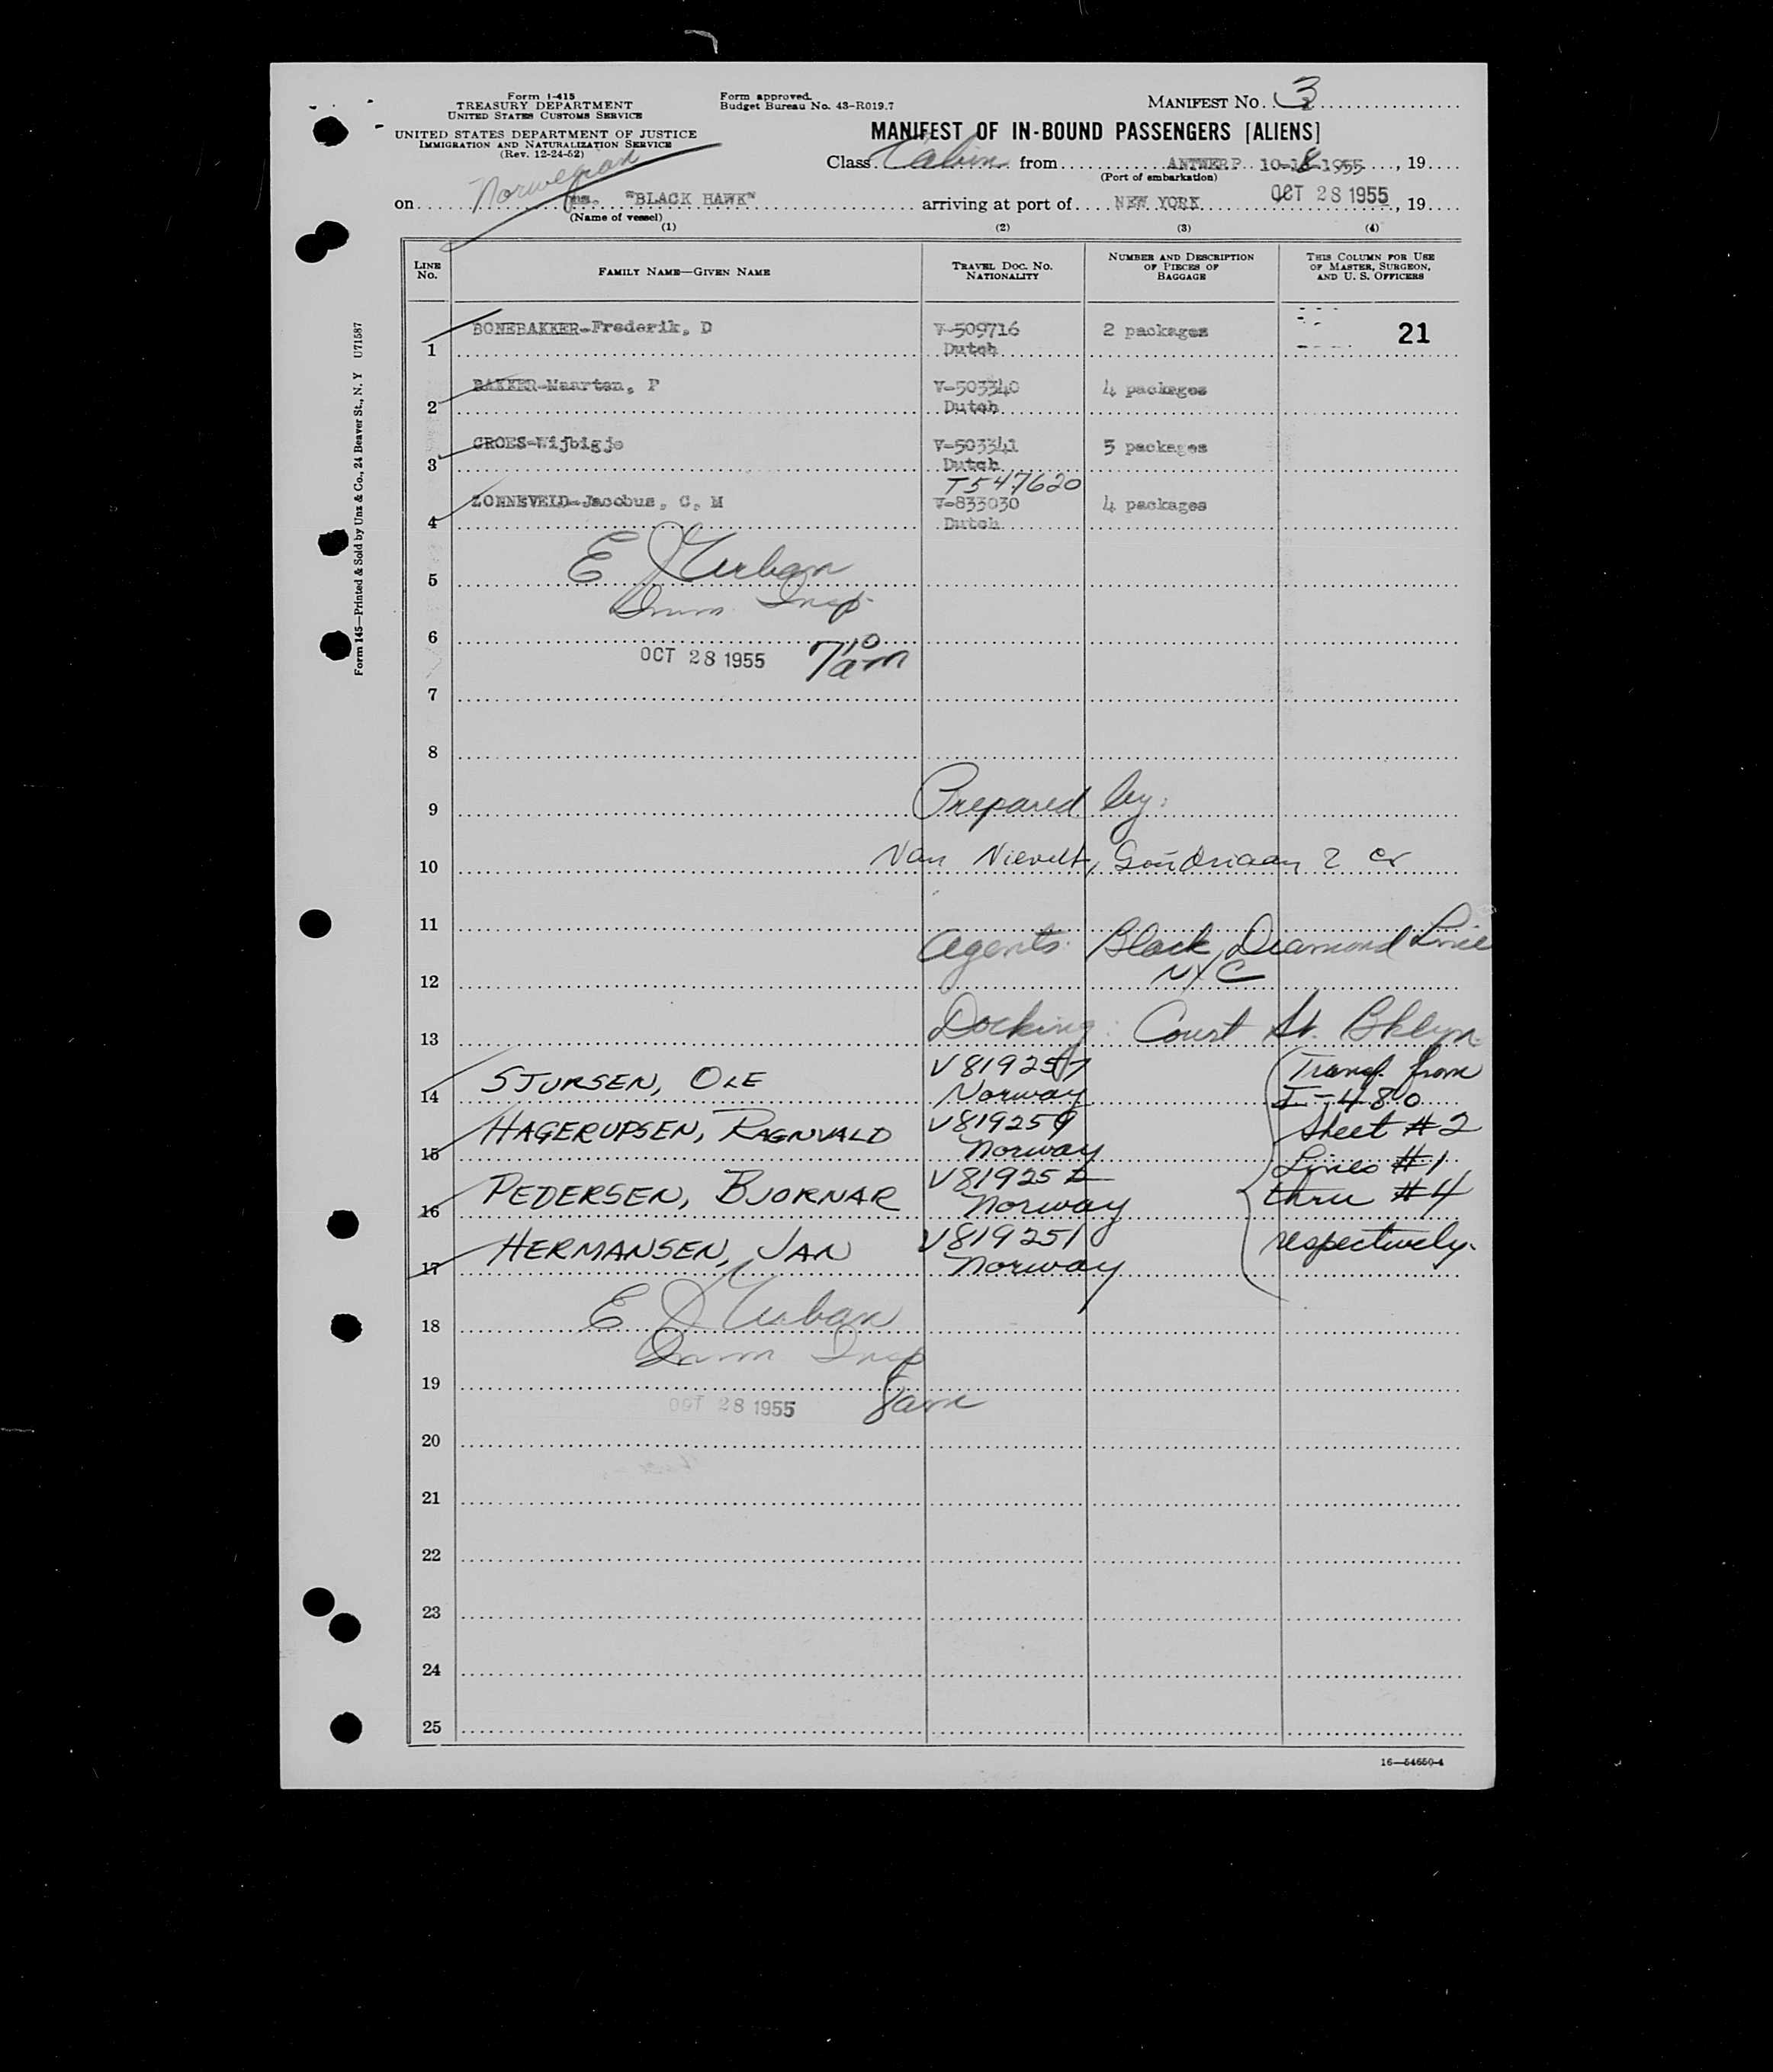 Form I-415
TREASURY DEPARTMENT
UNITED STATES CUSTOMS SERVICE
UNITED STATES DEPARTMENT OF JUSTICE
IMMIGRATION AND NATURALIZATION SERVICE
(Rev. 12-24-52)
Form approved.
Budget Bureau No. 43-R019.7
MANIFEST NO. 3
MANIFEST OF IN-BOUND PASSENGERS [ALIENS]
Class Cabin from ANTWERP 10-18-1955, 19
(Port of embarkation)
Norwegian
on ms. "BLACK HAWK" arriving at port of NEW YORK OCT 28 1955, 19
(Name of vessel)
(1) (2) (3) (4)
LINE NO.
FAMILY NAME—GIVEN NAME
TRAVEL DOC. NO. NATIONALITY
NUMBER AND DESCRIPTION OF PIECES OF BAGGAGE
THIS COLUMN FOR USE OF MASTER, SURGEON, AND U. S. OFFICERS
Form 145—Printed & Sold by Unz & Co., 24 Beaver St., N. Y U71587
SONEBAKKER-Frederik, D V-509716 2 packages 21
1 Dutch
BAKKER-Maarten, P V-503340 4 packages
2 Dutch
GROES-Wijbigje V-503341 5 packages
3 Dutch
T547620
ZONNEVELD-Jacobus, C, M V-833030 4 packages
4 Dutch
E J Urban
5
Imm. Insp.
6
OCT 28 1955 7 10 am
7
8
9 Prepared by:
10 Van Nievelt, Goudriaan & Co
11
Agents: Black Diamond Line
NYC
12
13 Docking: Court St. Bklyn.
STURSEN, OLE V819257 (Transf. from
14 Norway I-480
HAGERUPSEN, RAGNVALD V819259 Sheet #2
15 Norway Lines #1
PEDERSEN, BJORNAR V81925 thru #4
16 Norway
HERMANSEN, JAN V819251 respectively.
17 Norway
E J Urban
18
Imm Insp
19
OCT 28 1955 8am
20
21
22
23
24
25
16—54650-4